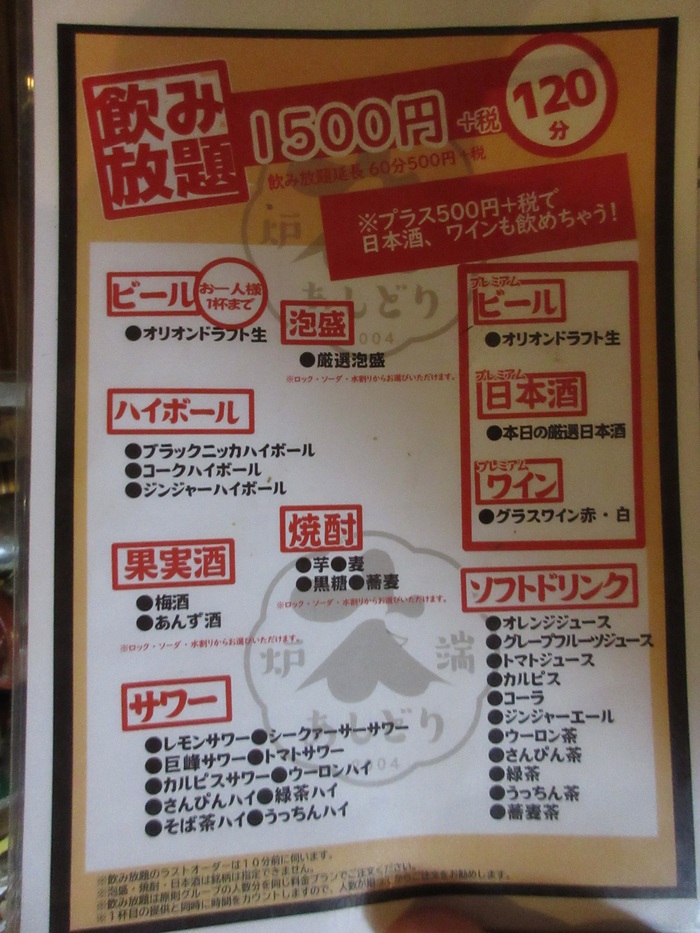 飲み放題
1500円 +税
120分
飲み放題延長 60分500円+税
※プラス500円+税で
日本酒、ワインも飲めちゃう!
ビール
お一人様
1杯まで
●オリオンドラフト生
泡盛
●厳選泡盛
※ロック・ソーダ・水割りからお選びいただけます。
ハイボール
●ブラックニッカハイボール
●コークハイボール
●ジンジャーハイボール
焼酎
●芋●麦
●黒糖●蕎麦
※ロック・ソーダ・水割りからお選びいただけます。
果実酒
●梅酒
●あんず酒
※ロック・ソーダ・水割りからお選びいただけます。
サワー
●レモンサワー●シークァーサーサワー
●巨峰サワー●トマトサワー
●カルピスサワー●ウーロンハイ
●さんぴんハイ●緑茶ハイ
●そば茶ハイ●うっちんハイ
プレミアム
ビール
●オリオンドラフト生
プレミアム
日本酒
●本日の厳選日本酒
プレミアム
ワイン
●グラスワイン赤・白
ソフトドリンク
●オレンジジュース
●グレープフルーツジュース
●トマトジュース
●カルピス
●コーラ
●ジンジャーエール
●ウーロン茶
●さんぴん茶
●緑茶
●うっちん茶
●蕎麦茶
炉端
あしどり
2004
※飲み放題のラストオーダーは10分前に伺います。
※泡盛・焼酎・日本酒は銘柄は指定できません。
※飲み放題は原則グループの人数分を同じ料金プランでご注文ください。
※1杯目の提供と同時に時間をカウントしますので、人数が揃ってからご注文をお勧めします。